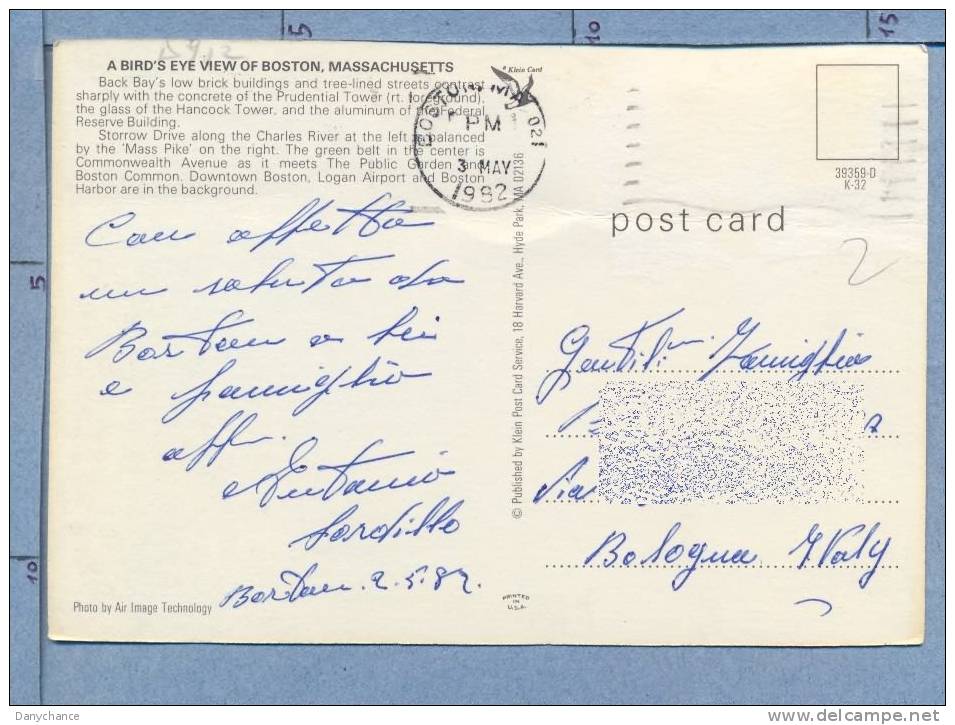 5
10
15
5
10
A BIRD'S EYE VIEW OF BOSTON, MASSACHUSETTS
Back Bay's low brick buildings and tree-lined streets contrast
sharply with the concrete of the Prudential Tower (rt. foreground),
the glass of the Hancock Tower, and the aluminum of the Federal
Reserve Building.
Storrow Drive along the Charles River at the left is balanced
by the 'Mass Pike' on the right. The green belt in the center is
Commonwealth Avenue as it meets The Public Garden and
Boston Common. Downtown Boston, Logan Airport and Boston
Harbor are in the background.
Klein Card
BOSTON MA 021
PM
3 MAY
1982
39359-D
K-32
post card
2
Con affetto
un saluto da
Boston a lei
e famiglia
aff.
Antonio
Boston. 2.5.82.
Photo by Air Image Technology
© Published by Klein Post Card Service, 18 Harvard Ave., Hyde Park, MA 02136
PRINTED
IN
U.S.A.
Gentil.ma Famiglia
Via
Bologna Italy
Danychance
http://www.delcampe.net